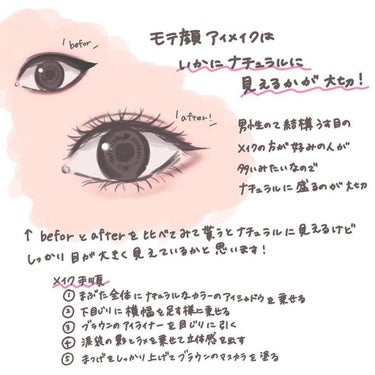 モテ顔 アイメイクは
いかに ナチュラルに
見えるかが 大切!
befor
after!
男性って 結構 うす目の
メイクの方が 好みの人が
多いみたいなので
ナチュラルに 盛るのが 大切
↑ beforとafterを 比べてみて 貰うと ナチュラルに 見えるけど
しっかり 目が大きく 見えているかと 思います!
メイク手順
① まぶた全体に ナチュラルなカラーの アイシャドウを 乗せる
② 下目じりに 横幅を 足す様に 乗せる
③ ブラウンの アイライナーを 目じりに 引く
④ 涙袋の 影とラメを 乗せて 立体感を 出す
⑤ まつげを しっかり 上げて ブラウンの マスカラを 塗る